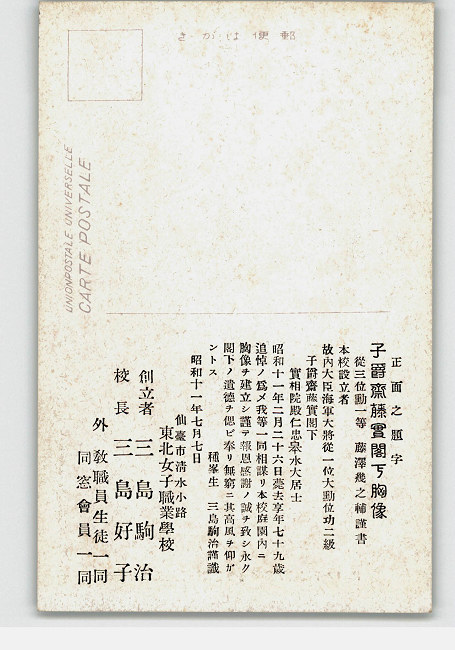 郵便はかき
UNION POSTALE UNIVERSELLE
CARTE POSTALE
正面之題字
子爵齋藤實閣下胸像
從三位勳一等 藤澤幾之輔謹書
本校設立者
故內大臣海軍大將從一位大勳位功二級
子爵齋藤實閣下
實相院殿仁忠皐水大居士
昭和十一年二月二十六日薨去享年七十九歲
追悼ノ爲メ我等一同相謀リ本校庭園內ニ
胸像ヲ建立シ謹テ報恩感謝ノ誠ヲ致シ永ク
閣下ノ遺德ヲ偲ビ奉リ無窮ニ其高風ヲ仰ガ
ントス
種峯生 三島駒治謹識
昭和十一年七月七日
仙臺市淸水小路
東北女子職業學校
創立者 三島駒治
校長 三島好子
外 敎職員生徒一同
同窓會員一同